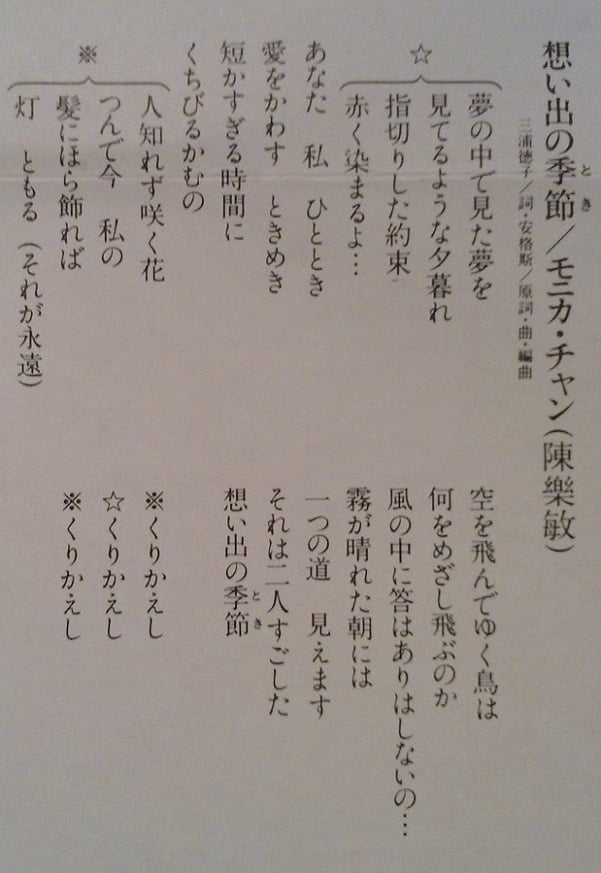 想い出の季節／モニカ・チャン(陳樂敏)
とき
三浦徳子／詞・安格斯／原詞・曲・編曲
☆
夢の中で見た夢を
見てるような夕暮れ
指切りした約束
赤く染まるよ…
あなた　私　ひととき
愛をかわす　ときめき
短かすぎる時間に
くちびるかむの
※
人知れず咲く花
つんで今　私の
髪にほら飾れば
灯　ともる（それが永遠）
空を飛んでゆく鳥は
何をめざし飛ぶのか
風の中に答はありはしないの…
霧が晴れた朝には
一つの道　見えます
それは二人すごした
想い出の季節
とき
※くりかえし
☆くりかえし
※くりかえし